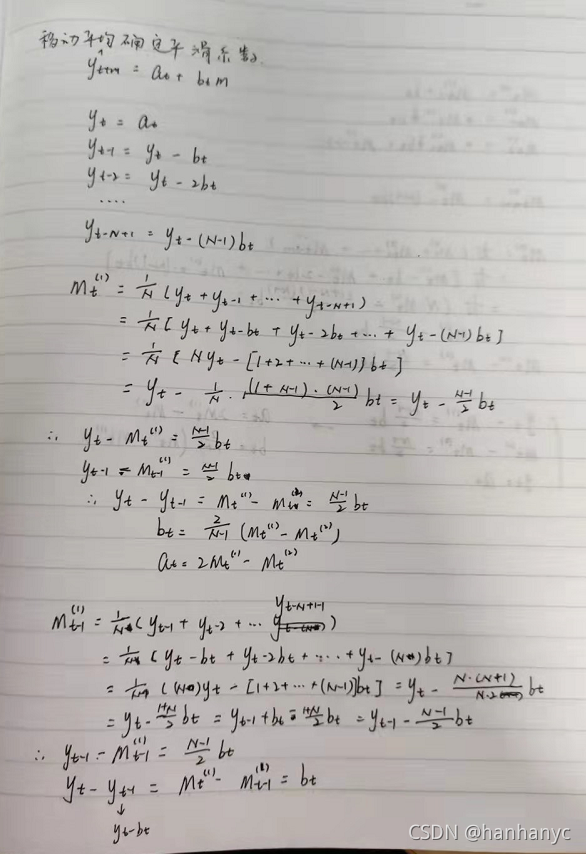 移动平均确定平滑系数
ŷt+m = at + bt m
yt = at
yt-1 = yt - bt
yt-2 = yt - 2bt
....
yt-N+1 = yt - (N-1)bt
Mt(1) = 1/N (yt + yt-1 + ... + yt-N+1)
= 1/N [yt + yt-bt + yt-2bt + ... + yt-(N-1)bt]
= 1/N {Nyt - [1+2+...+(N-1)]bt}
= yt - 1/N · (1+N-1)·(N-1)/2 bt = yt - N-1/2 bt
∴ yt - Mt(1) = N-1/2 bt
yt-1 - Mt-1(1) = N-1/2 bt
∴ yt - yt-1 = Mt(1) - Mt(2) = N-1/2 bt
bt = 2/N-1 (Mt(1) - Mt(2))
at = 2Mt(1) - Mt(2)
Mt-1(1) = 1/N (yt-1 + yt-2 + ... yt-N+1-1)
= 1/N (yt-bt + yt-2bt + ... + yt-(N)bt]
= 1/N (N)yt - [1+2+...+(N-1)]bt] = yt - N·(N+1)/N·2 bt
= yt - 1+N/2 bt = yt-1 + bt - 1+N/2 bt = yt-1 - N-1/2 bt
∴ yt-1 - Mt-1(1) = N-1/2 bt
yt - yt-1 = Mt(1) - Mt-1(1) = bt
↓
yt-bt
CSDN @hanhanyc